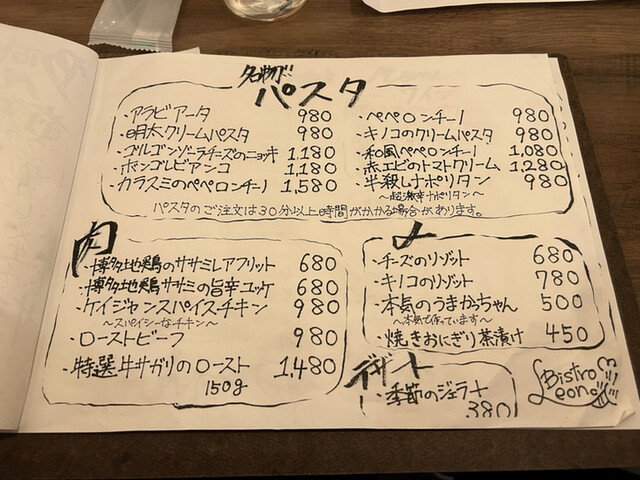 名物!! パスタ
・アラビアータ 980
・明太クリームパスタ 980
・ゴルゴンゾーラチーズのニョッキ 1,180
・ボンゴレビアンコ 1,180
・カラスミのペペロンチーノ 1,580
・ペペロンチーノ 980
・キノコのクリームパスタ 980
・和風ペペロンチーノ 1,080
・赤エビのトマトクリーム 1,280
・半殺しナポリタン 980
〜超激辛ナポリタン〜
パスタのご注文は30分以上時間がかかる場合があります。
肉
・博多地鶏のササミレアフリット 680
・博多地鶏ササミの旨辛ユッケ 680
・ケイジャンスパイスチキン 980
〜スパイシーなチキン〜
・ローストビーフ 980
・特選牛サガリのロースト 1,480
150g
〆
・チーズのリゾット 680
・キノコのリゾット 780
・本気のうまかっちゃん 500
〜本気で作っています〜
・焼きおにぎり茶漬け 450
デザート
・季節のジェラート
380
Bistro
Leone